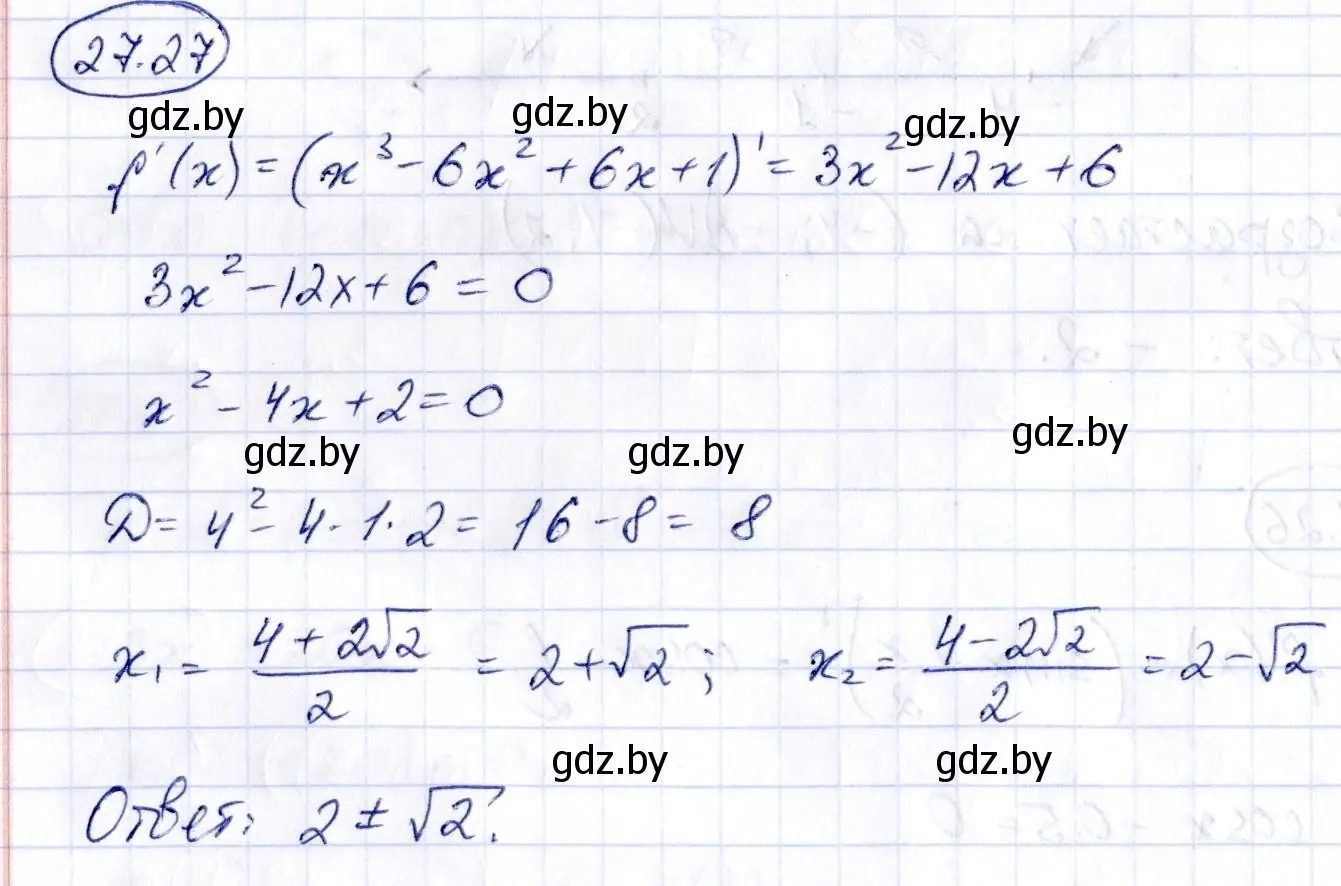 27.27
gdz.by gdz.by gdz.by
f'(x) = (x³ - 6x² + 6x + 1)' = 3x² - 12x + 6
3x² - 12x + 6 = 0
x² - 4x + 2 = 0
gdz.by gdz.by gdz.by
D = 4² - 4·1·2 = 16 - 8 = 8
x₁ = (4 + 2√2)/2 = 2 + √2; x₂ = (4 - 2√2)/2 = 2 - √2
gdz.by gdz.by
Ответ: 2 ± √2.